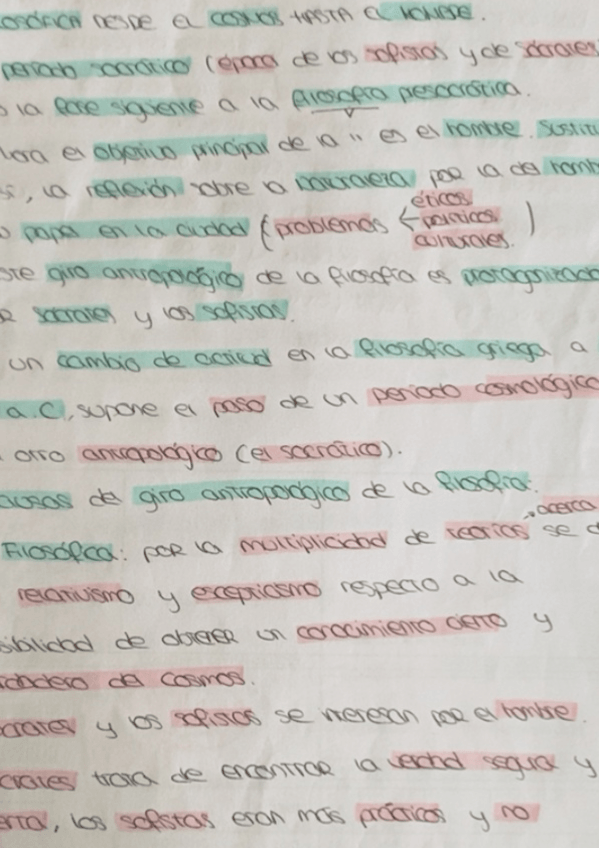 osófica desde el cosmos hasta el hombre.
periodo socrático (época de los sofistas y de sócrates
o la fase siguiente a la filosofía presocrática.
hora el objetivo principal de la " es el hombre. Sustitu
sí, la reflexión sobre la naturaleza por la de homb
o papel en la ciudad (problemas < éticos. políticos. culturales.)
ste giro antropológico de la filosofía es protagonizado
r socrates y los sofistas.
un cambio de actitud en la filosofía griega a
a.C, supone el paso de un periodo cosmológico
otro antropológico (el socrático).
ausas del giro antropológico de la filosofía:
Filosófica: por la multiplicidad de teorías acerca se d
relativismo y escepticismo respecto a la
sibilidad de obtener un conocimiento cierto y
rdadero del cosmos.
ocrates y los sofistas se interesan por el hombre.
crates trata de encontrar la verdad segura y
erta, los sofistas eran más prácticos y no